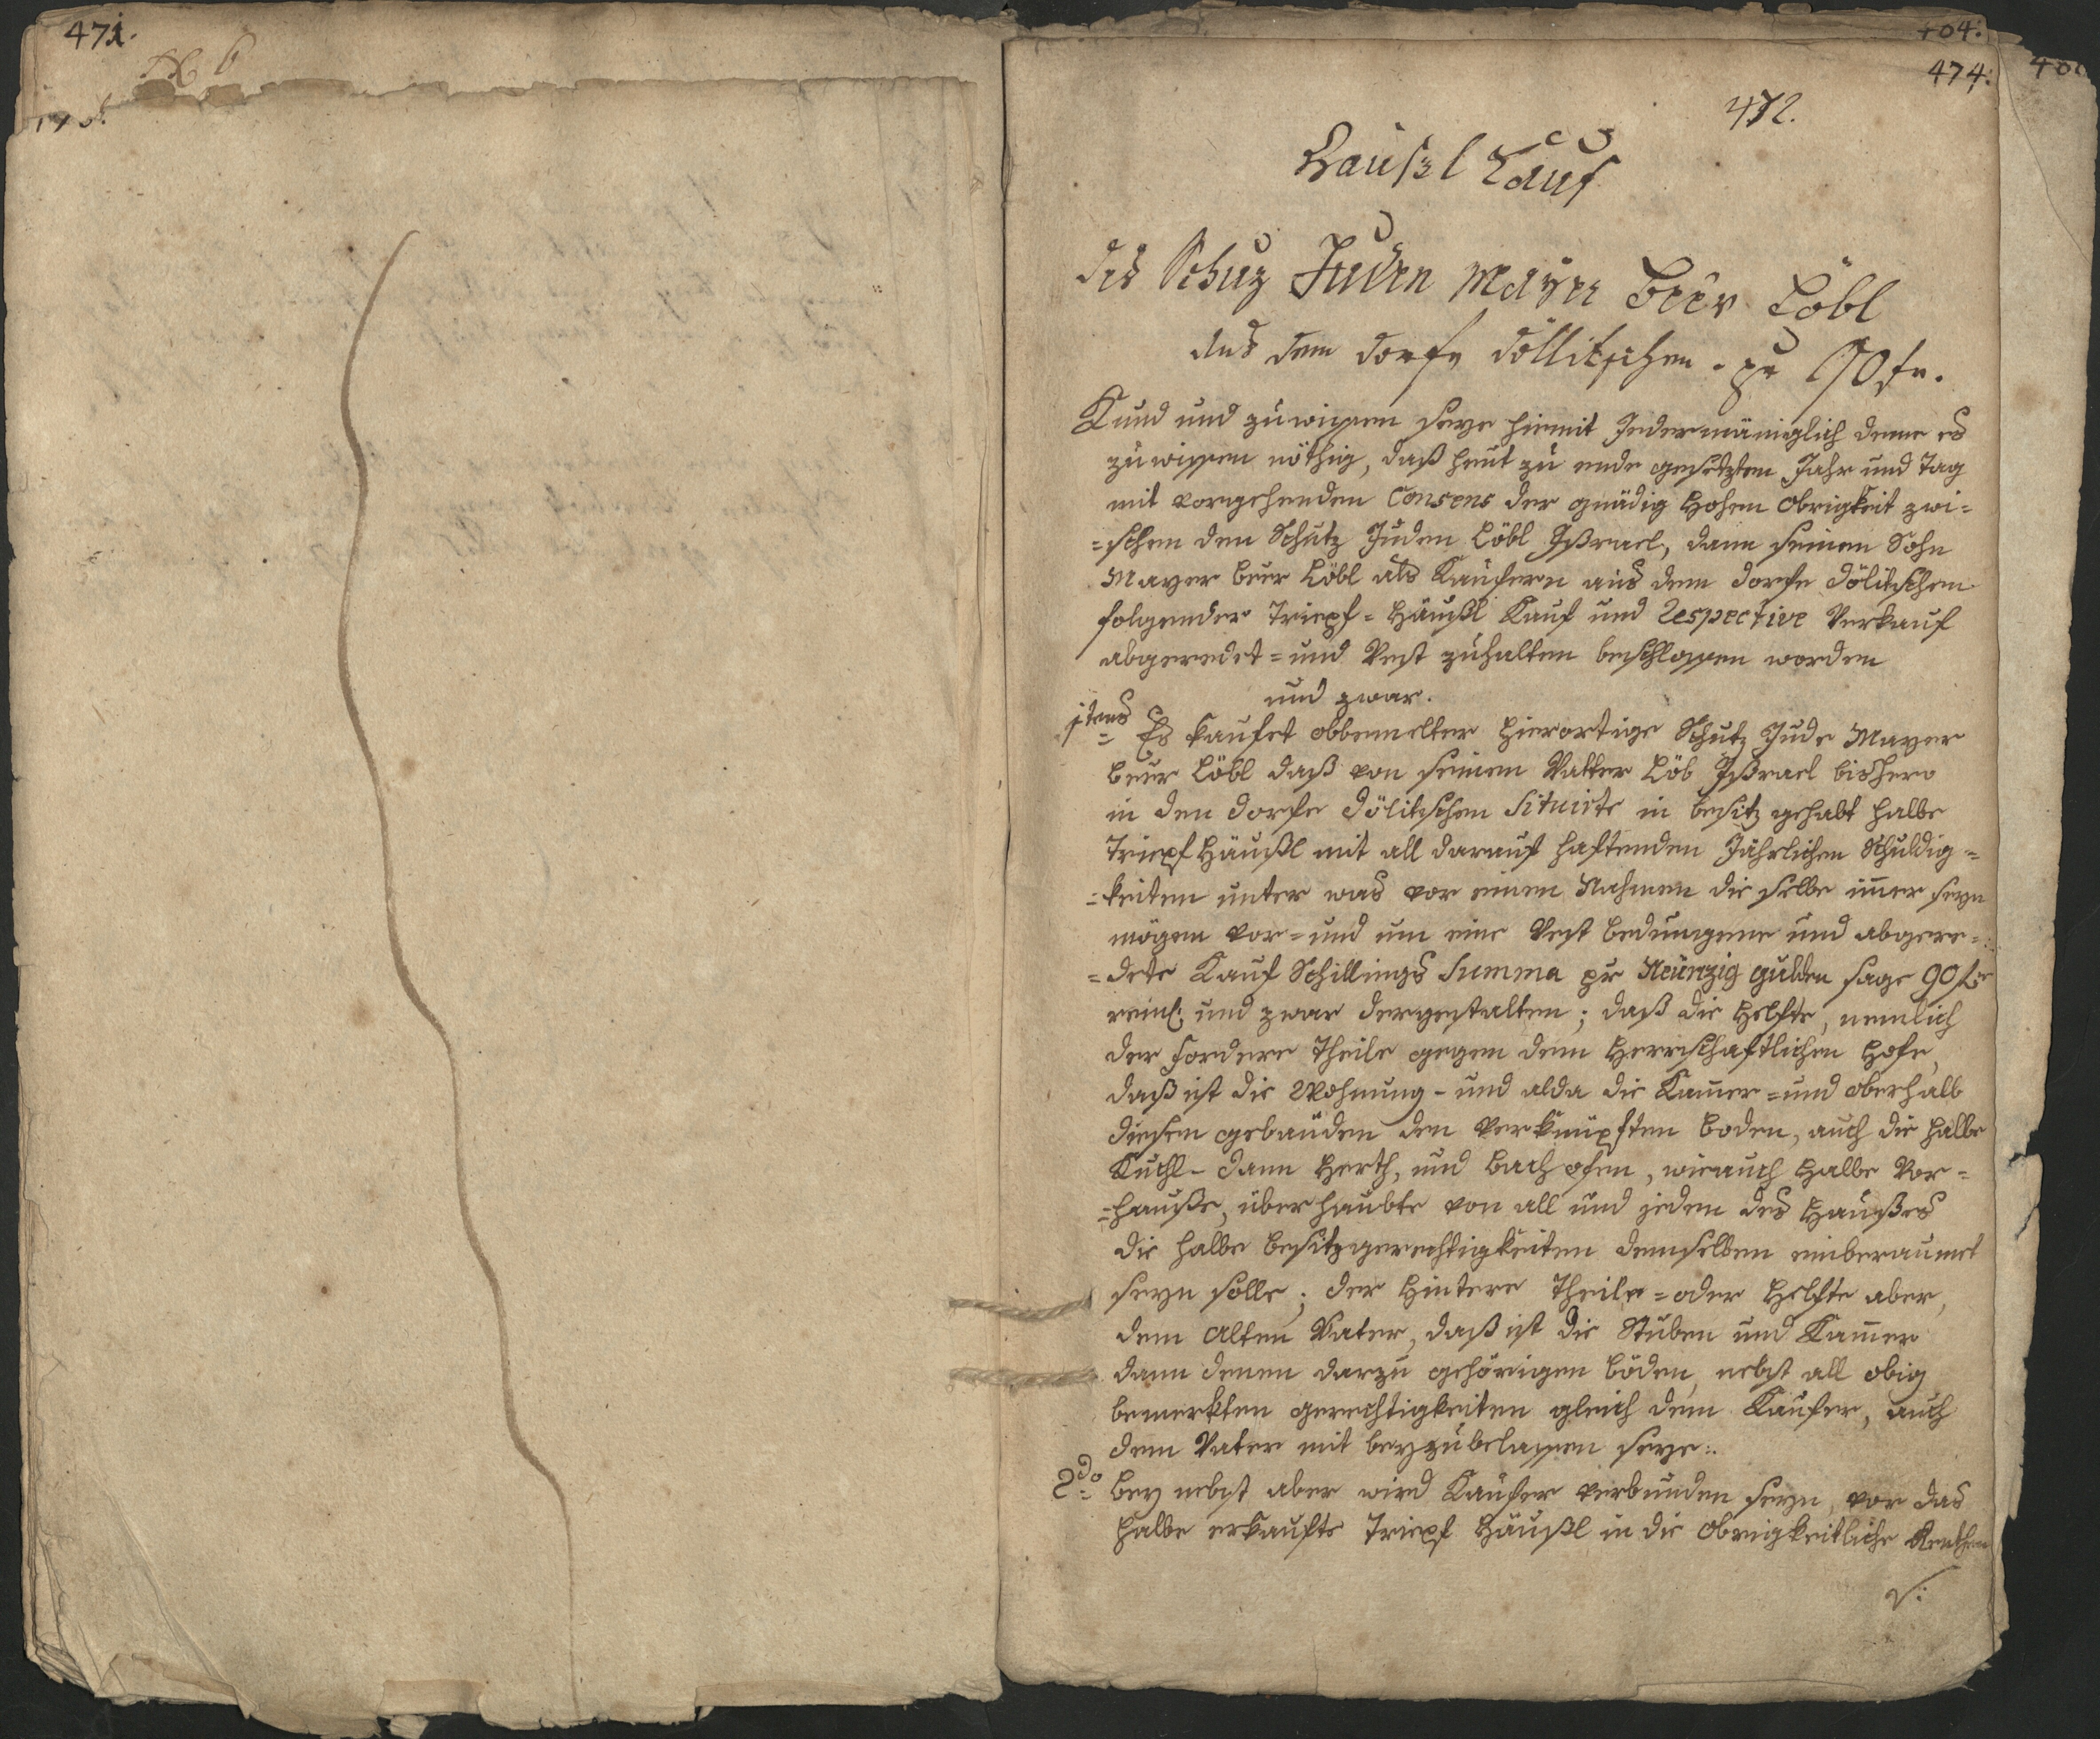 471.
104:
474:
472.
Haußl Kauf
des Schuz Juden Mayer Beer Löbl
aus dem Dorfe Döllitschen . pr 90 fr.
Kund und zuwissen seye hiemit Jedermäniglich deme es
zu wissen nöthig, daß heut zu ende gesetzten Jahr und Tag
mit vorgehenden Consens der gnädig Hohen Obrigkeit zwi=
=schen den Schutz Juden Löbl Ißrael, dann seinen Sohn
Mayer Beer Löbl als Kaüfern aus dem Dorfe Dölitschen
folgender Tripf= Häußl Kauf und Respective Verkauf
abgeredet= und Vest zuhalten beschlossen worden
und zwar.
1tens Es kaufet obbemelter hierortige Schutz Jude Mayer
Beer Löbl daß von seinem Vatter Löb Ißrael bishero
in den Dorfe Dölitschen Situirte in besitz gehabt halbe
Tripf Häußl mit all darauf haftenden Jährlichen Schuldig=
=keiten unter was vor einen Nahmen die selbe imer seyn
mögen vor= und um eine Vest bedungene und abgere=
=dete Kauf Schillings Summa pr Neünzig gulden sage 90 fr
reinl: und zwar dergestalten; daß die Helfte, nemlich
der fordere Theile gegen dem Herrschaftlichen Hofe,
daß ist die Wohnung- und alda die Kamer= und oberhalb
diesen gebäuden den verknüpften boden, auch die halbe
Kuchl- dann Herth, und bachofen, wie auch halbe Vor=
=hauße, überhaubte von all und jeden des Haußes
die halbe besitzgerechtigkeiten demselben einberaumet
seyn solle; der Hintere Theile= oder Helfte aber,
dem Alten Vater, daß ist die Stuben und Kamer
dann denen darzu gehörigen böden, nebst all obig
bemerkten gerechtigkeiten gleich dem Kaüfer, auch
dem Vater mit beyzubelassen seye:.
2do bey nebst aber wird Kaüfer verbunden seyn, vor das
halbe erkaufte Tripf Häußl in die Obrigkeitliche Renthen